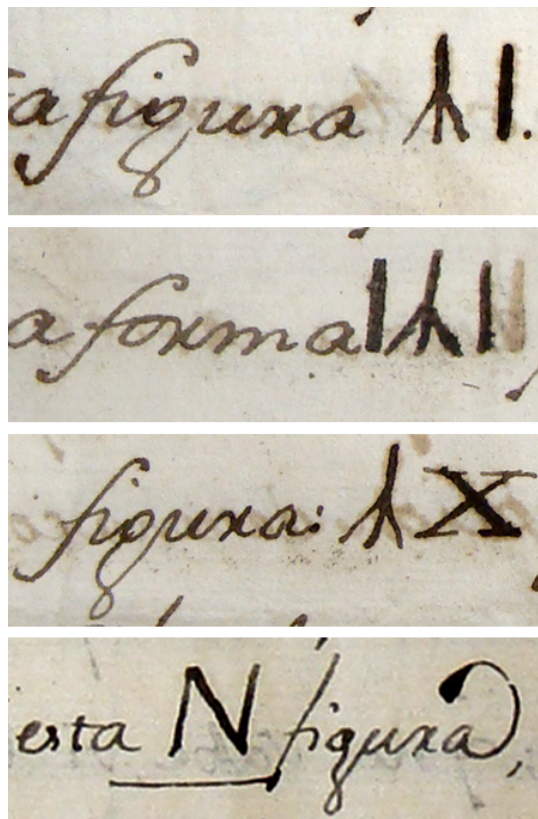 a figura ⅄I.
a formaI⅄I
figura: ⅄X
esta N figura,